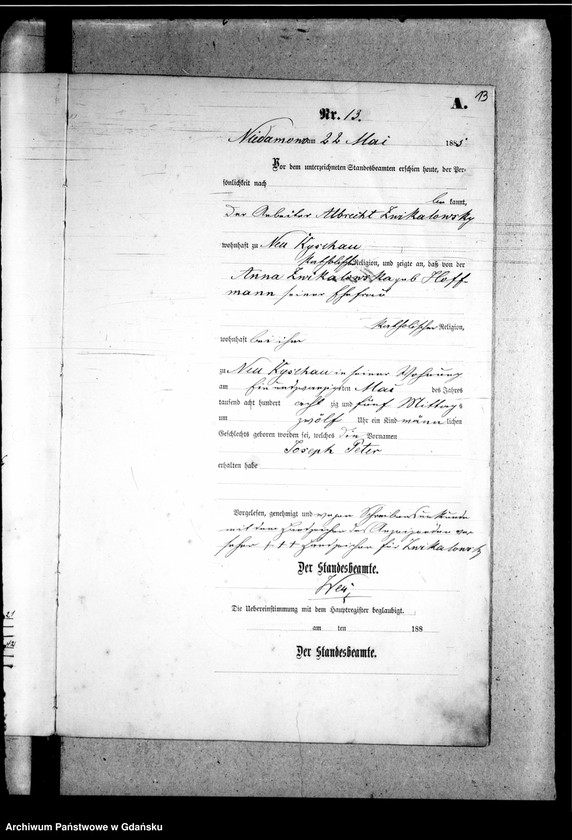 13
A.
Nr. 13.
Niedamowo am 22 Mai 1885
Vor dem unterzeichneten Standesbeamten erschien heute, der Per-
sönlichkeit nach
be kannt,
der Arbeiter Albrecht Zwikalowsky
wohnhaft zu Neu Kyschau
katholischer Religion, und zeigte an, daß von der
Anna Zwikalowska geb Hoff-
mann seiner Ehefrau
katholischer Religion,
wohnhaft bei ihm
zu Neu Kyschau in seiner Wohnung
am einundzwanzigsten Mai des Jahres
tausend acht hundert acht zig und fünf Mittags
um zwölf Uhr ein Kind männ lichen
Geschlechts geboren worden sei, welches die Vornamen
Joseph Peter
erhalten habe
Vorgelesen, genehmigt und wegen Schreibensunkunde
mit dem Handzeichen des Anzeigenden ver-
sehen +++ Handzeichen für Zwikalowsky
Der Standesbeamte.
Die Uebereinstimmung mit dem Hauptregister beglaubigt.
am ten 188
Der Standesbeamte.
Archiwum Państwowe w Gdańsku